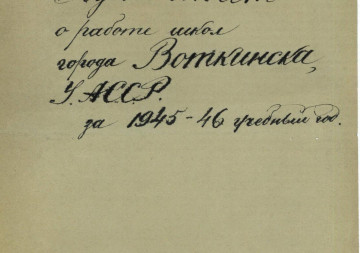 о работе школ
города Воткинска,
У.АССР.
за 1945-46 учебный год.